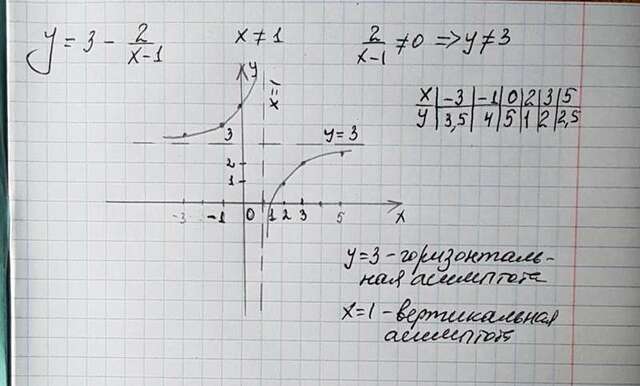 y = 3 - 2/(x-1)   x ≠ 1   2/(x-1) ≠ 0 => y ≠ 3
x | -3 | -1 | 0 | 2 | 3 | 5
y | 3,5 | 4 | 5 | 1 | 2 | 2,5
y
x=1
3
y=3
2
1
-3 -1 0 1 2 3 5
x
y=3 - горизонталь-
ная асимптота
x=1 - вертикальная
асимптота